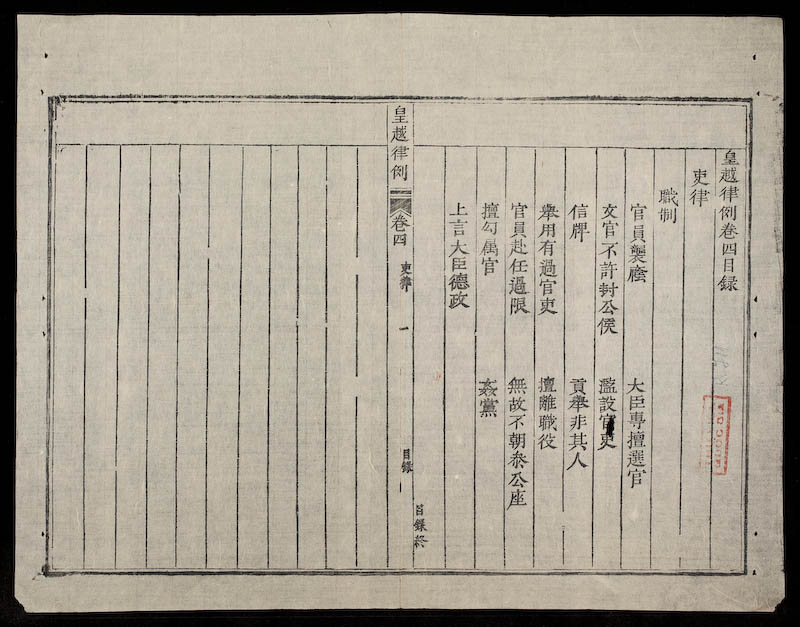 皇越律例卷四目録
吏律
職制
官員襲廕 大臣專擅選官
文官不許封公侯 濫設官吏
信牌 貢舉非其人
舉用有過官吏 擅離職役
官員赴任過限 無故不朝叅公座
擅勾属官 姦黨
上言大臣德政
目録終
皇越律例 卷四 吏律 一 目録